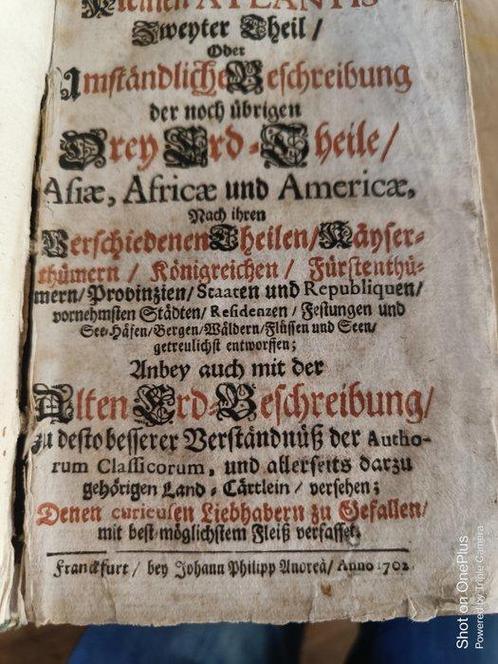 Kleinen ATLANTIS
Zweyter Theil /
Oder
Umständliche Beschreibung
der noch übrigen
Drey Erd-Theile /
Asiæ, Africæ und Americæ,
Nach ihren
Verschiedenen Theilen / Käyser-
thümern / Königreichen / Fürstenthü-
mern / Provinzien / Staaten und Republiquen /
vornehmsten Städten / Residenzen / Festungen und
See-Häfen / Bergen / Wäldern / Flüssen und Seen /
getreulichst entworffen;
Anbey auch mit der
Alten Erd-Beschreibung /
zu desto besserer Verständnüß der Autho-
rum Classicorum, und allerseits darzu
gehörigen Land-Cärtlein / versehen;
Denen curieusen Liebhabern zu Gefallen /
mit best-möglichstem Fleiß verfasset.
Franckfurt / bey Johann Philipp Andreä / Anno 1702
Shot on OnePlus
Powered by Triple Camera